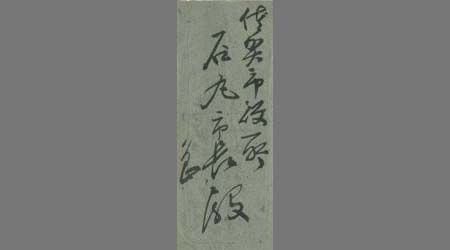 佐賀市役所
石丸市長殿